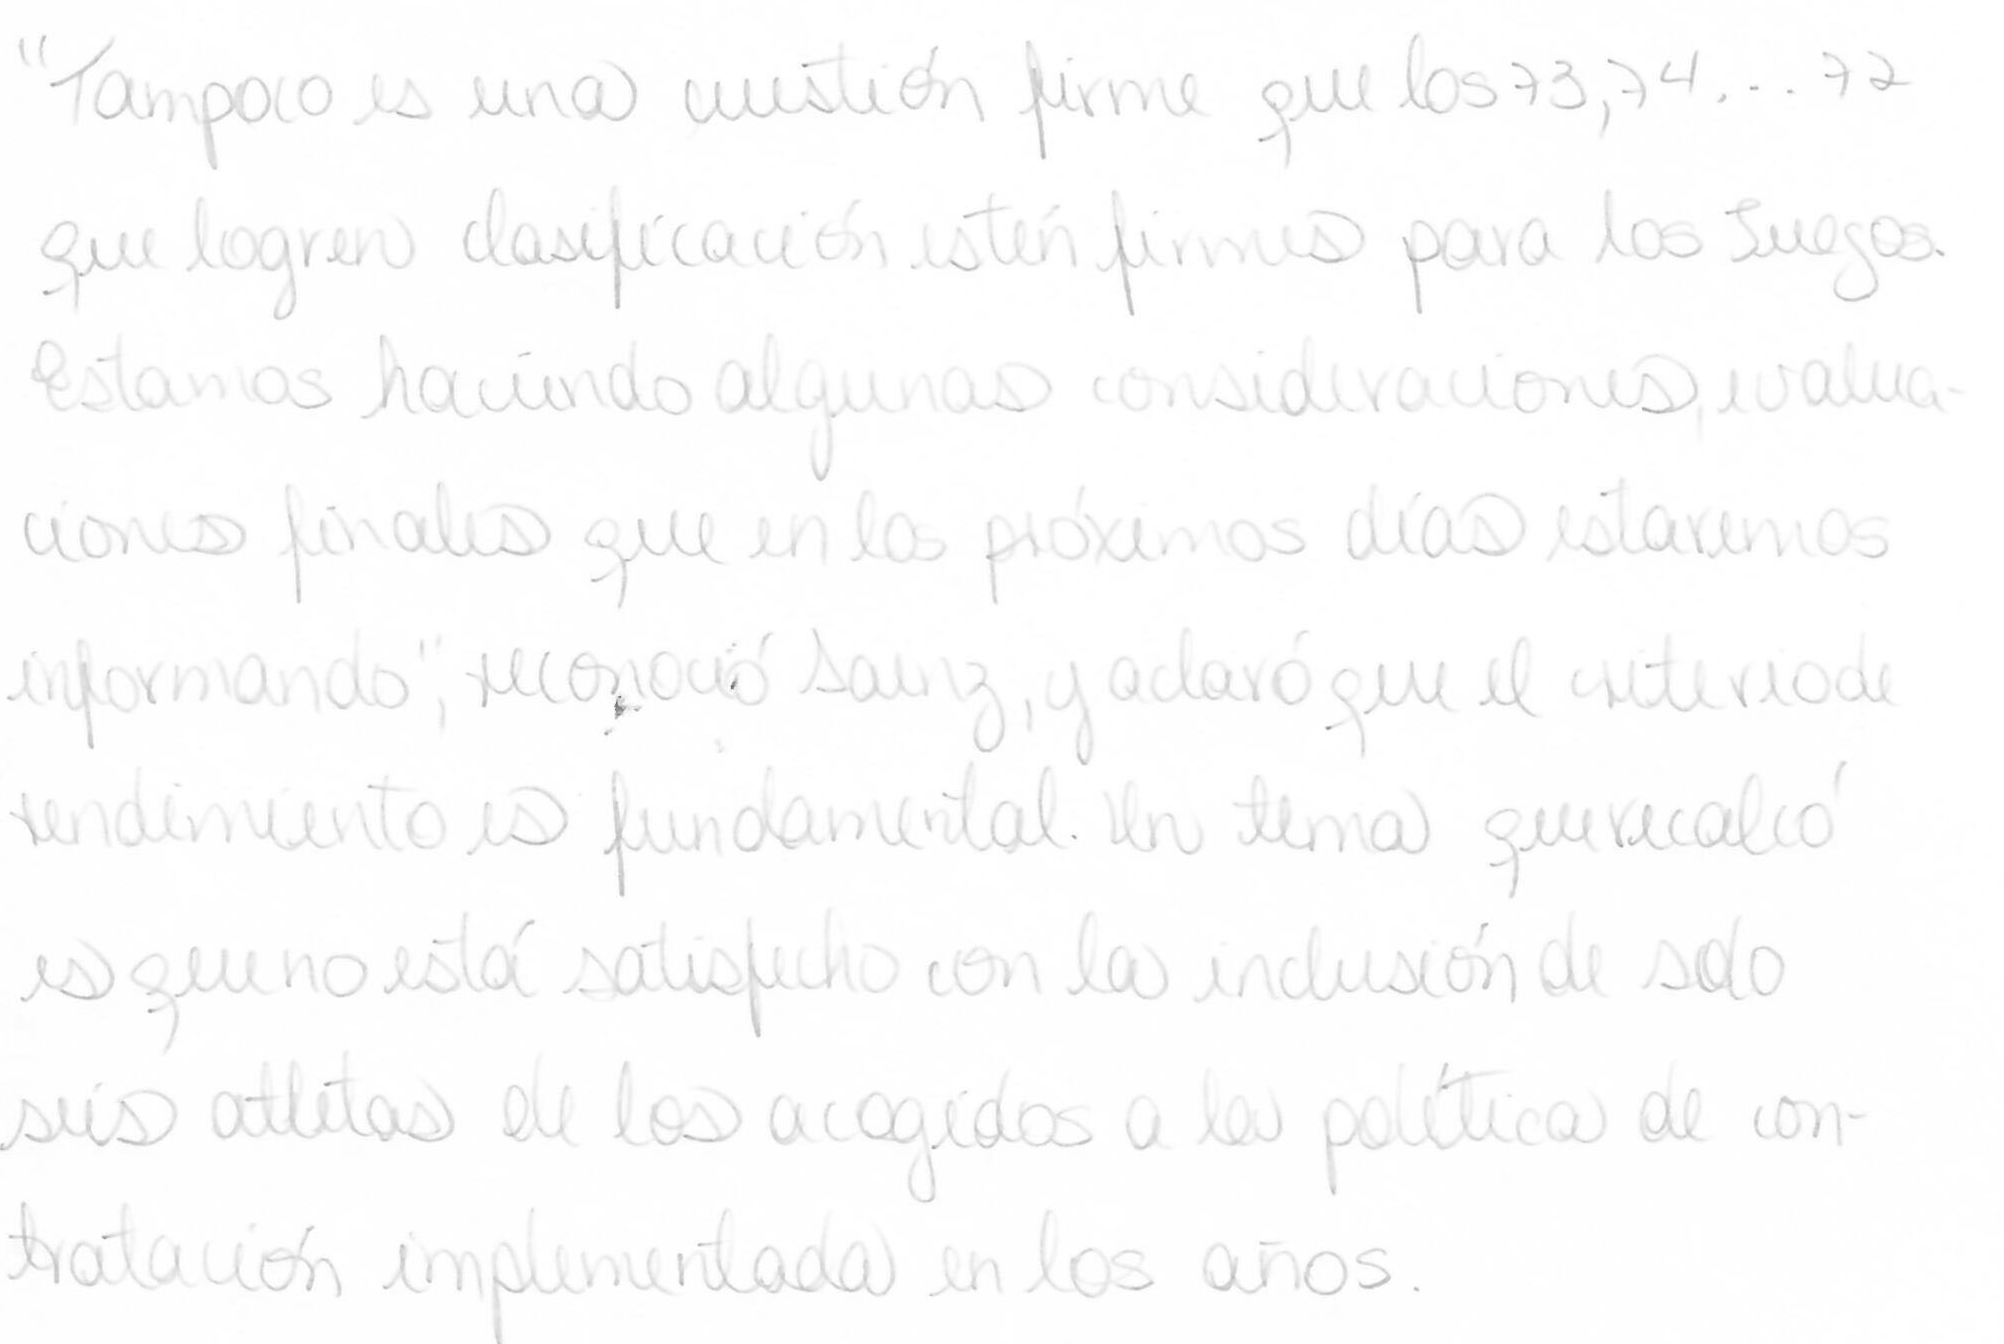 "Tampoco es una cuestión firme que los 73, 74... 72
que logren clasificación estén firmes para los Juegos.
Estamos haciendo algunas consideraciones, evalua-
ciones finales que en los próximos días estaremos
informando", reconoció Sainz, y aclaró que el criterio de
rendimiento es fundamental. Un tema que recalcó
es que no está satisfecho con la inclusión de solo
seis atletas de los acogidos a la política de con-
tratación implementada en los años.